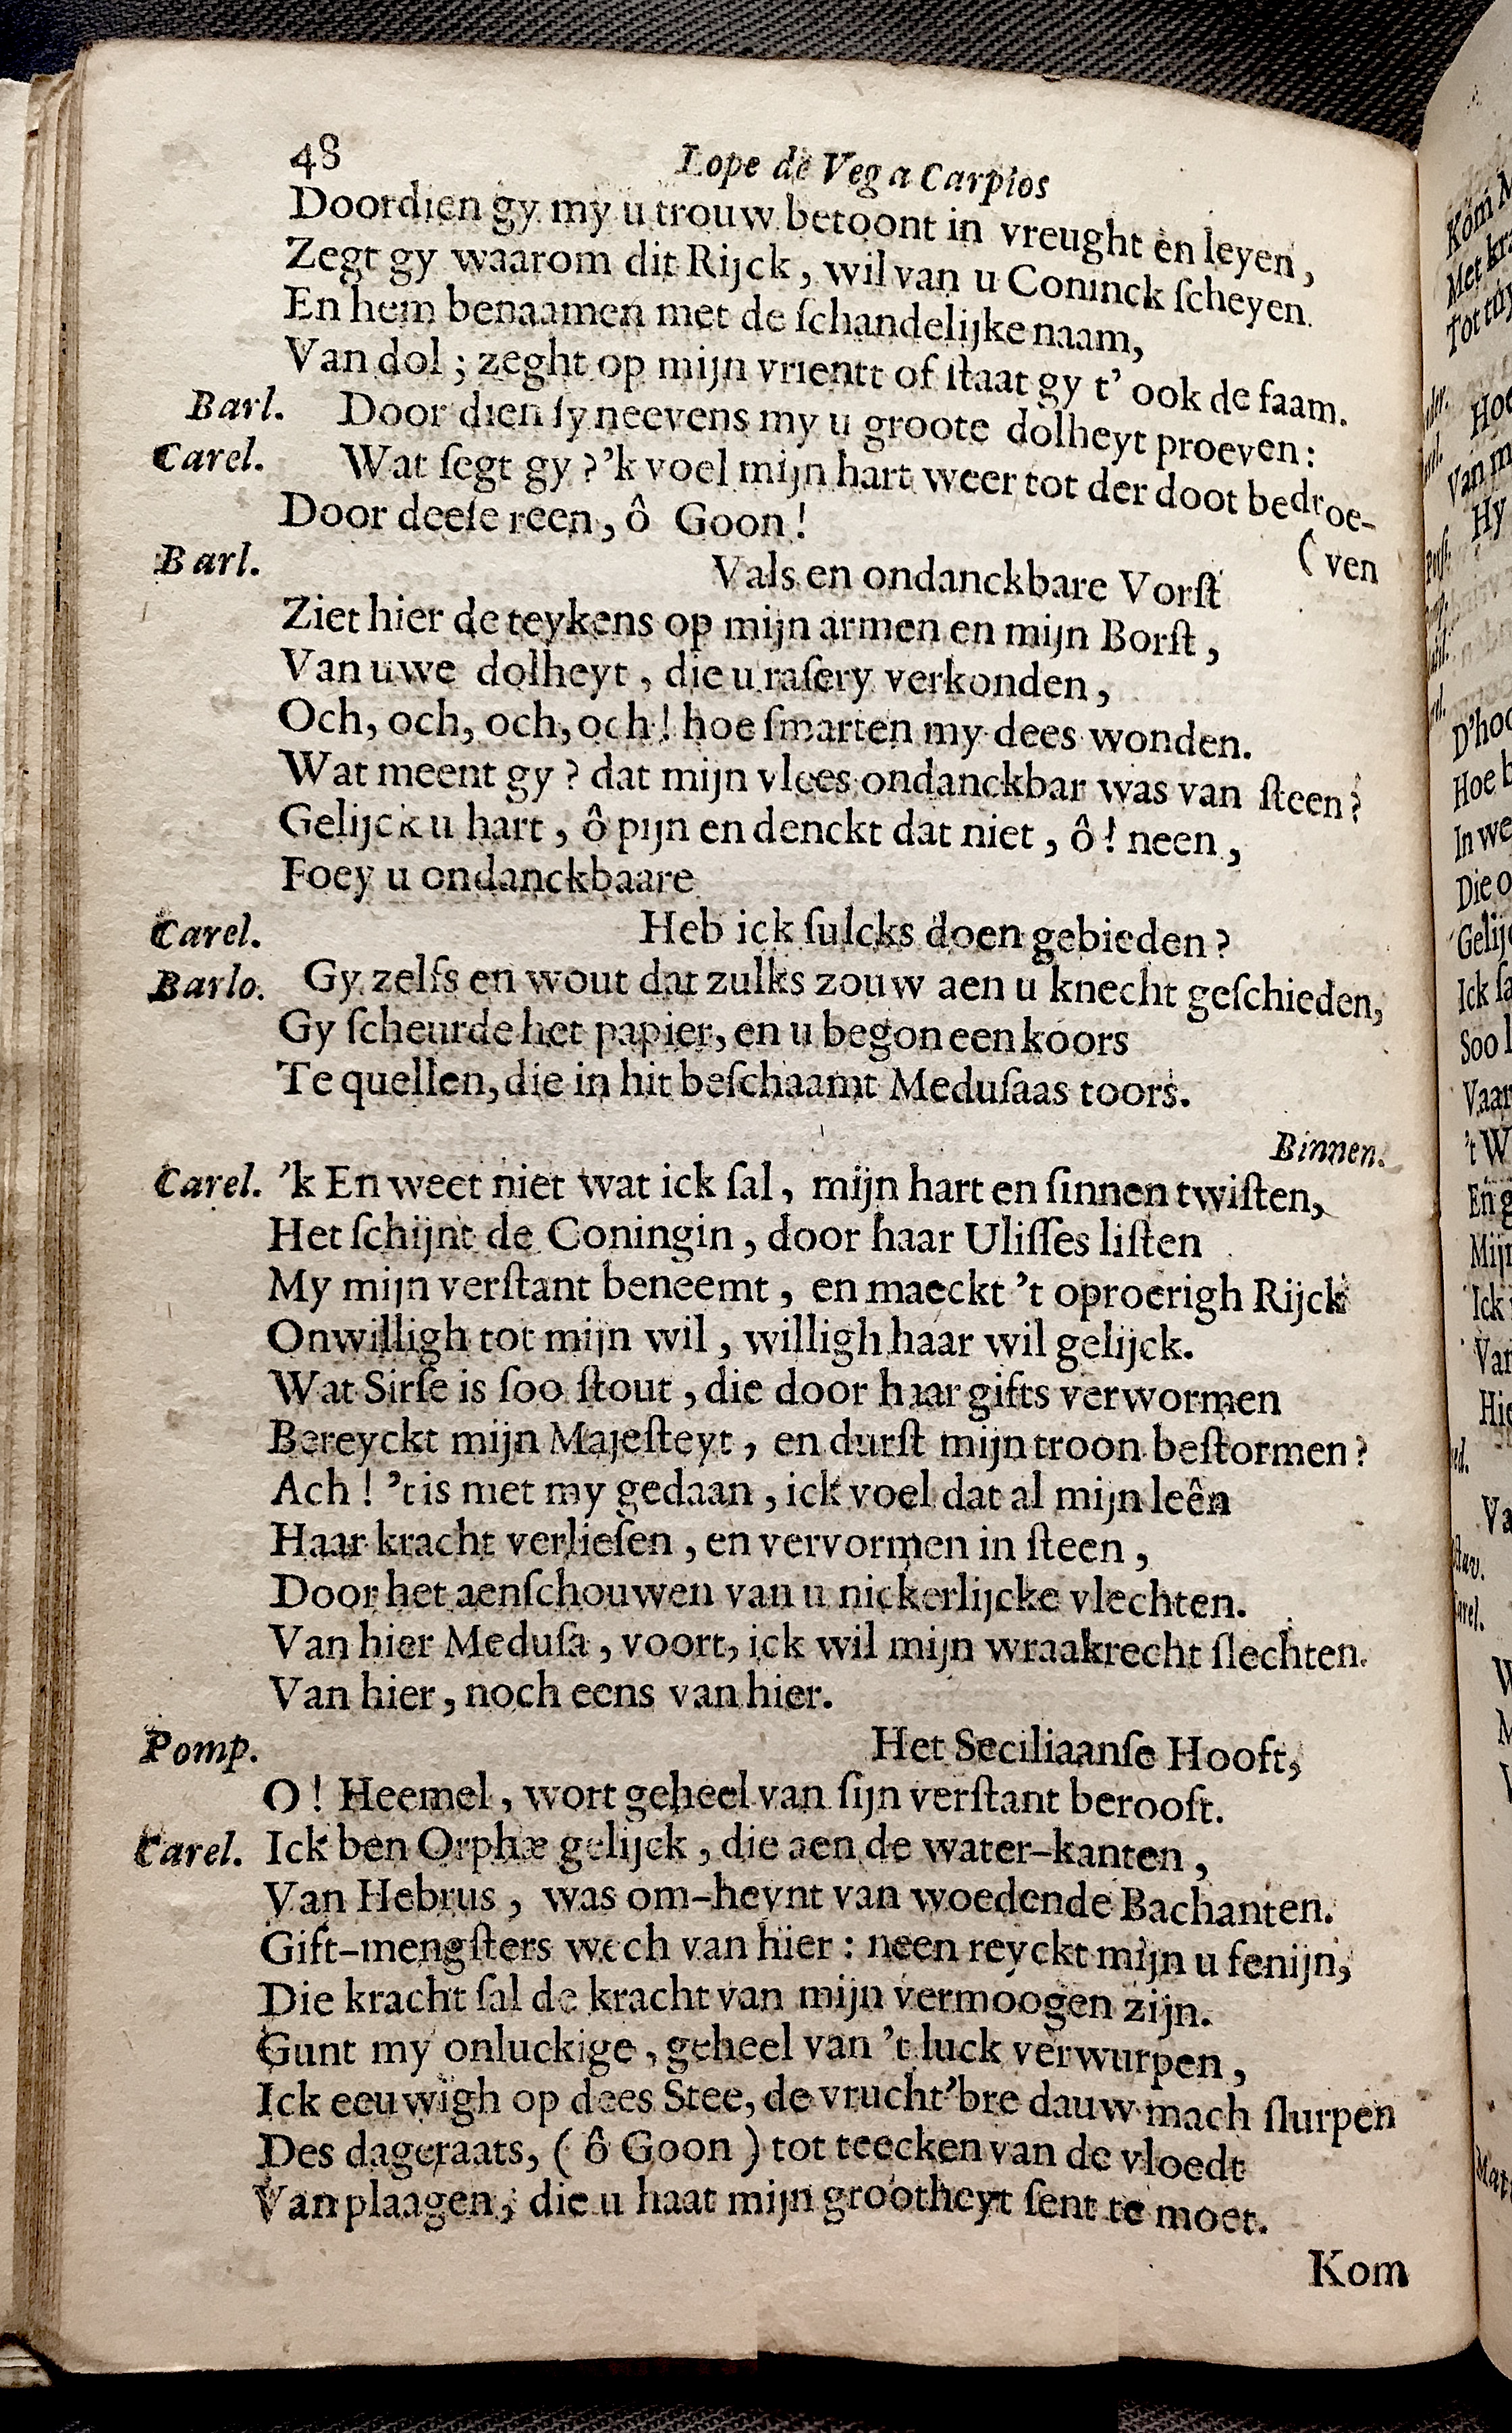 48 Lope de Vega Carpios
Doordien gy my u trouw betoont in vreught en leyen,
Zegt gy waarom dit Rijck, wil van u Coninck ſcheyen.
En hem benaamen met de ſchandelijke naam,
Van dol; zeght op mijn vrientt of ſtaat gy t' ook de faam.
Barl. Door dien ſy neevens my u groote dolheyt proeven:
Carel. Wat ſegt gy? 'k voel mijn hart weer tot der doot bedroe-
Door deeſe reen, ô Goon! (ven
Barl. Vals en ondanckbare Vorſt
Ziet hier de teykens op mijn armen en mijn Borſt,
Van uwe dolheyt, die u raſery verkonden,
Och, och, och, och! hoe ſmarten my dees wonden.
Wat meent gy? dat mijn vlees ondanckbar was van ſteen?
Gelijck u hart, ô pijn en denckt dat niet, ô! neen,
Foey u ondanckbaare
Carel. Heb ick ſulcks doen gebieden?
Barlo. Gy zelfs en wout dat zulks zouw aen u knecht geſchieden,
Gy ſcheurde het papier, en u begon een koors
Te quellen, die in hit beſchaamt Meduſaas toors.
Binnen.
Carel. 'k En weet niet wat ick ſal, mijn hart en ſinnen twiſten,
Het ſchijnt de Coningin, door haar Uliſſes liſten
My mijn verſtant beneemt, en maeckt 't oproerigh Rijck
Onwilligh tot mijn wil, willigh haar wil gelijck.
Wat Sirſe is ſoo ſtout, die door haar gifts verwormen
Bereyckt mijn Majeſteyt, en durſt mijn troon beſtormen?
Ach! 't is met my gedaan, ick voel dat al mijn leên
Haar kracht verlieſen, en vervormen in ſteen,
Door het aenſchouwen van u nickerlijcke vlechten.
Van hier Meduſa, voort, ick wil mijn wraakrecht ſlechten.
Van hier, noch eens van hier.
Pomp. Het Seciliaanſe Hooft,
O! Heemel, wort geheel van ſijn verſtant berooft.
Carel. Ick ben Orphæ gelijck, die aen de water-kanten,
Van Hebrus, was om-heynt van woedende Bachanten.
Gift-mengſters wech van hier: neen reyckt mijn u fenijn,
Die kracht ſal de kracht van mijn vermoogen zijn.
Gunt my onluckige, geheel van 't luck verwurpen,
Ick eeuwigh op dees Stee, de vrucht'bre dauw mach ſlurpen
Des dageraats, (ô Goon) tot teecken van de vloedt
Van plaagen, die u haat mijn grootheyt ſent te moet.
Kom